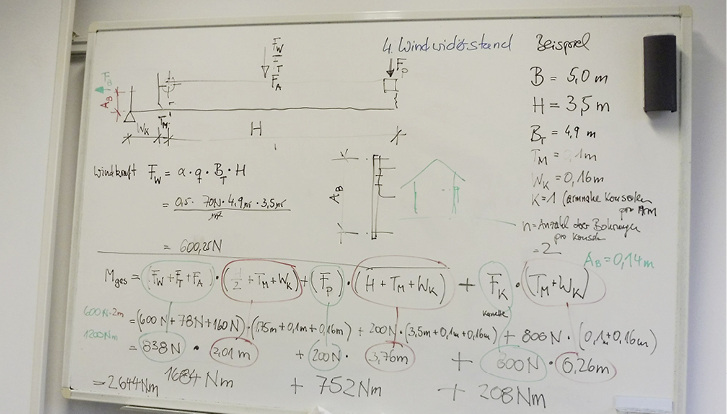 4. Windwiderstand
Beispiel
F_W
F_T
F_A
F_P
A_B
T_M
W_K
H
B = 5,0 m
H = 3,5 m
B_T = 4,9 m
T_M = 0,1m
W_K = 0,16m
K = 1 (armnahe Konsolen
pro Arm
n = Anzahl der Bohrungen
pro Konsole
= 2
A_B = 0,14m
A_B
Windkraft F_W = α · q · B_T · H
= 0,5 · 70N · 4,9m · 3,5m
m²
= 600,25N
M_ges = (F_W + F_T + F_A) · (H/2 + T_M + W_K) + (F_P) · (H + T_M + W_K) + F_K · (T_M + W_K)
Konsole
600N · 2m
1200Nm
= (600N + 78N + 160N) · (1,75m + 0,1m + 0,16m) + 200N · (3,5m + 0,1m + 0,16m) + 800N · (0,1m + 0,16m)
= 838N · 2,01m + 200N · 3,76m + 800N · 0,26m
= 2644Nm 1684Nm + 752Nm + 208Nm